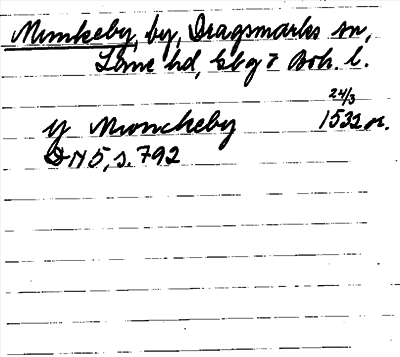 Munkeby, by, Dragsmarks sn,
Lane hd, Gbg o Boh. l.
24/3
y Mwnckeby 1532 or.
DN 5, s. 792